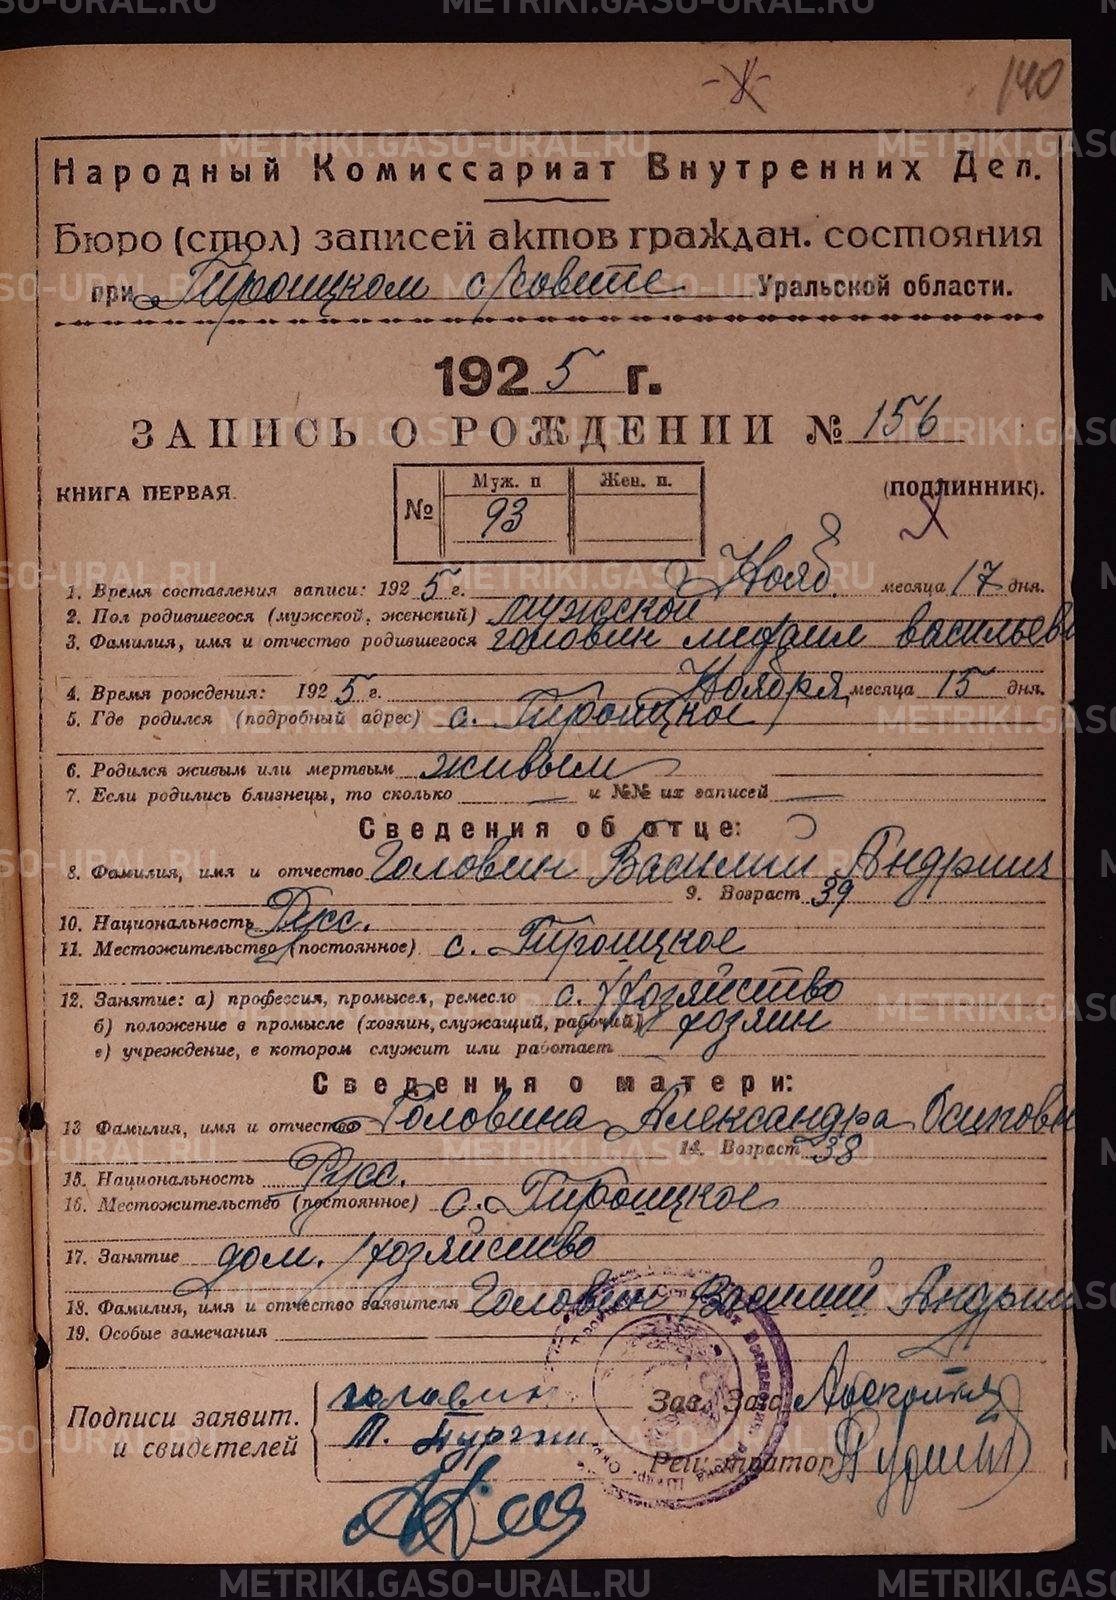 140
Народный Комиссариат Внутренних Дел.
Бюро (стол) записей актов граждан. состояния
при Троицком с/совете Уральской области.
1925 г.
ЗАПИСЬ О РОЖДЕНИИ № 156
КНИГА ПЕРВАЯ. (подлинник).
Муж. п Жен. п.
№ 93
1. Время составления записи: 1925 г. Нояб. месяца 17 дня.
2. Пол родившегося (мужской, женский) мужской
3. Фамилия, имя и отчество родившегося головин михаил васильеви
4. Время рождения: 1925 г. Ноября месяца 15 дня.
5. Где родился (подробный адрес) с. Троицкое
6. Родился живым или мертвым живым
7. Если родились близнецы, то сколько — и №№ их записей —
Сведения об отце:
8. Фамилия, имя и отчество Головин Василий Андриич
9. Возраст 39
10. Национальность Русс.
11. Местожительство (постоянное) с. Троицкое
12. Занятие: а) профессия, промысел, ремесло с. хозяйство
б) положение в промысле (хозяин, служащий, рабочий) хозяин
в) учреждение, в котором служит или работает
Сведения о матери:
13 Фамилия, имя и отчество Головина Александра Осиповн
14. Возраст 38
15. Национальность Русс.
16. Местожительство (постоянное) с. Троицкое
17. Занятие дом. хозяйство
18. Фамилия, имя и отчество заявителя Головин Василий Андрии
19. Особые замечания
Подписи заявит. и свидетелей
головин Зав. Заг.
Регистратор
METRIKI.GASO-URAL.RU